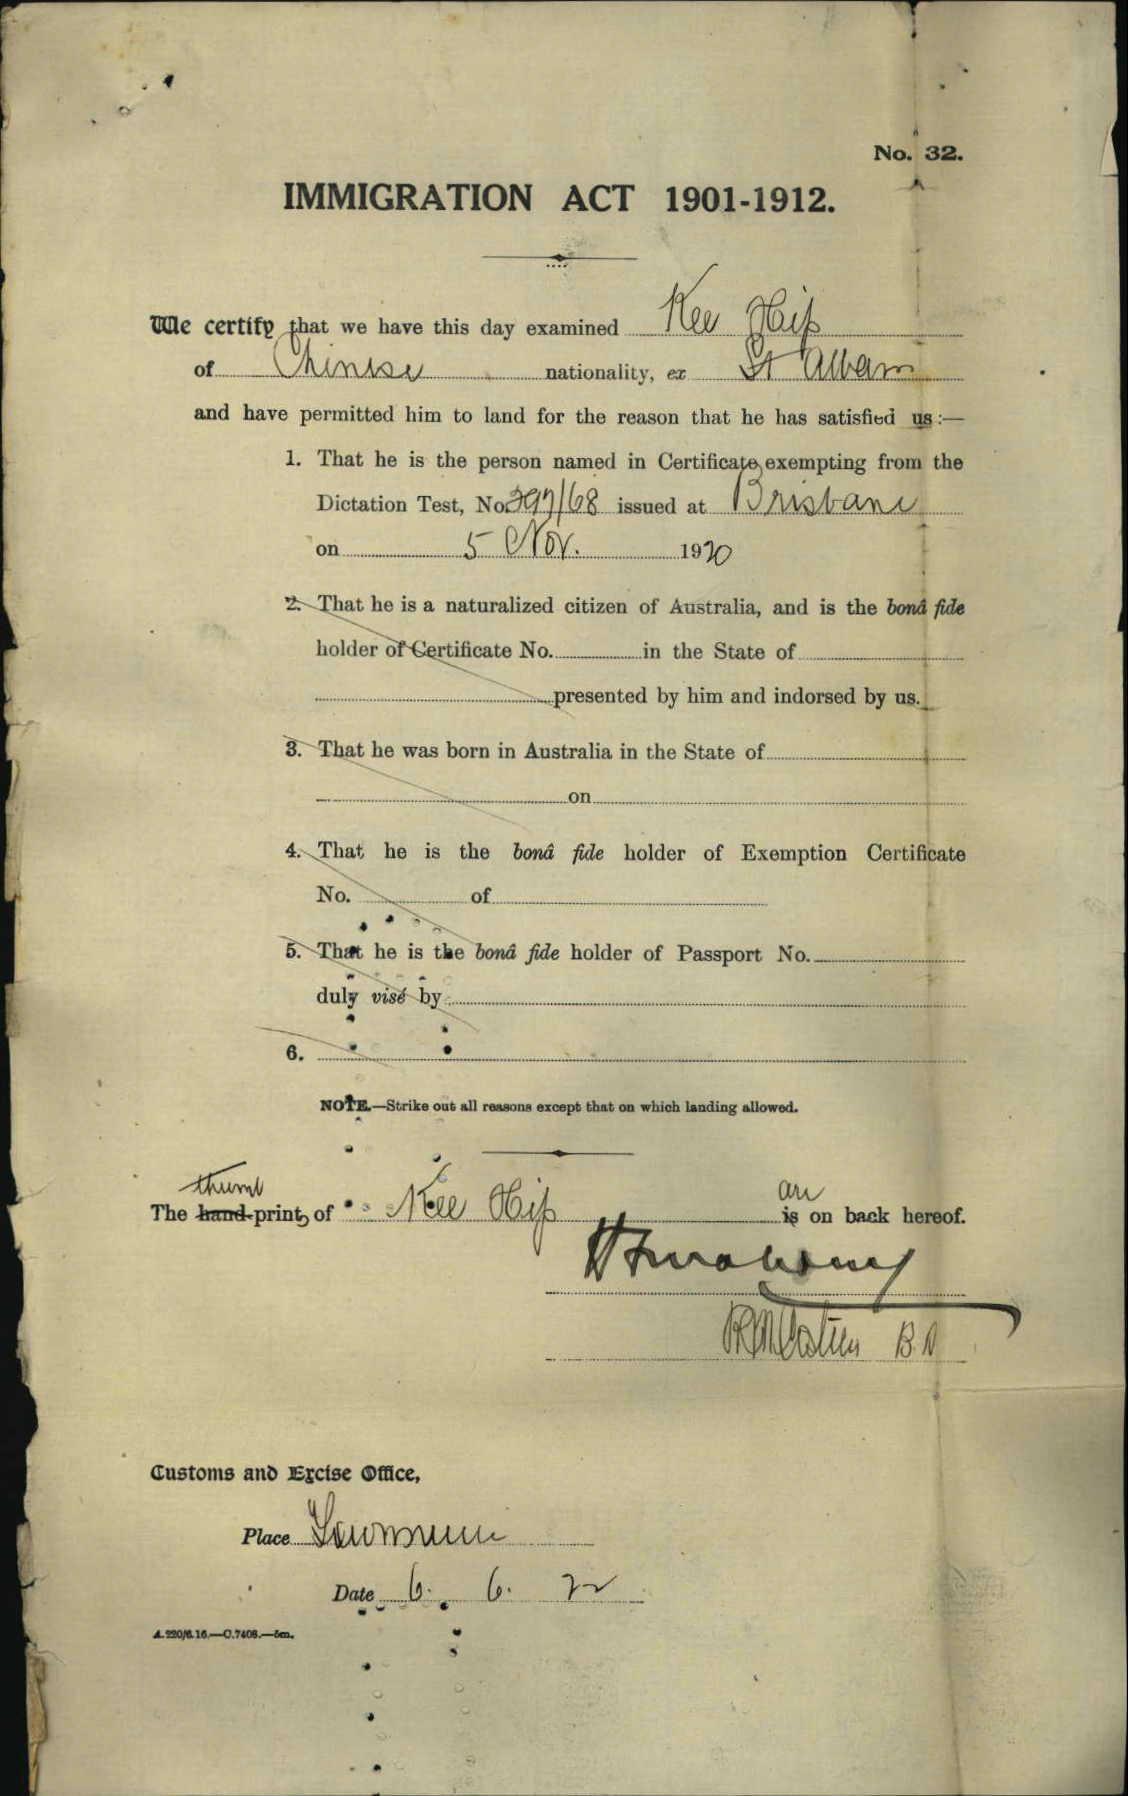 No. 32.
IMMIGRATION ACT 1901-1912.
We certify that we have this day examined Kee Hip
of Chinese nationality, ex St Albans
and have permitted him to land for the reason that he has satisfied us:—
1. That he is the person named in Certificate exempting from the
Dictation Test, No. 297/68 issued at Brisbane
on 5 Nov. 1920
2. That he is a naturalized citizen of Australia, and is the bonâ fide
holder of Certificate No. in the State of
presented by him and indorsed by us.
3. That he was born in Australia in the State of
on
4. That he is the bonâ fide holder of Exemption Certificate
No. of
5. That he is the bonâ fide holder of Passport No.
duly visé by
6.
NOTE.—Strike out all reasons except that on which landing allowed.
thumb are
The hand-prints of Kee Hip is on back hereof.
Customs and Excise Office,
Place
Date 6. 6. 22
A.220/6.16.—C.7408.—5m.